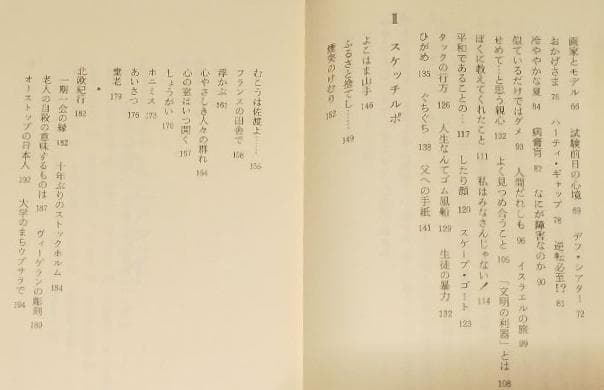 画家とモデル 66 試験前日の心境 69 デフ・シアター 72
おかげさま 75 ハーティ・ギャップ 78 逆転必至!? 81
冷ややかな夏 84 病膏肓 87 なにが障害なのか 90
似ているだけではダメ 93 人間だれしも 96 イスラエルの旅 99
せめて!と思う親心 102 よく見つめ合うこと 105 「文明の利器」とは 108
ぼくに教えてくれたこと 111 私はみなさんじゃない! 114
平和であることの… 117 したり顔 120 スケープ・ゴート 123
タックの行方 126 人生なんてゴム風船 129 生徒の暴力 132
ひがめ 135 ぐちぐち 138 父への手紙 141
Ⅱ スケッチルポ
よこはま山手 146
ふるさと捨てし…… 149
煙突のけむり 152
むこうは佐渡よ…… 155
フランスの田舎で 158
浮かぶ 161
心やさしき人々の群れ 164
心の窓はいつ開く 167
しょうがい 170
ホニミス 173
あいさつ 176
童老 179
*
北欧紀行 182
一期一会の縁 182 十年ぶりのストックホルム 184
老人の自殺の意味するものは 187 ヴィーゲランの彫刻 189
オーストップの日本人 192 大学のまちウプサラで 194